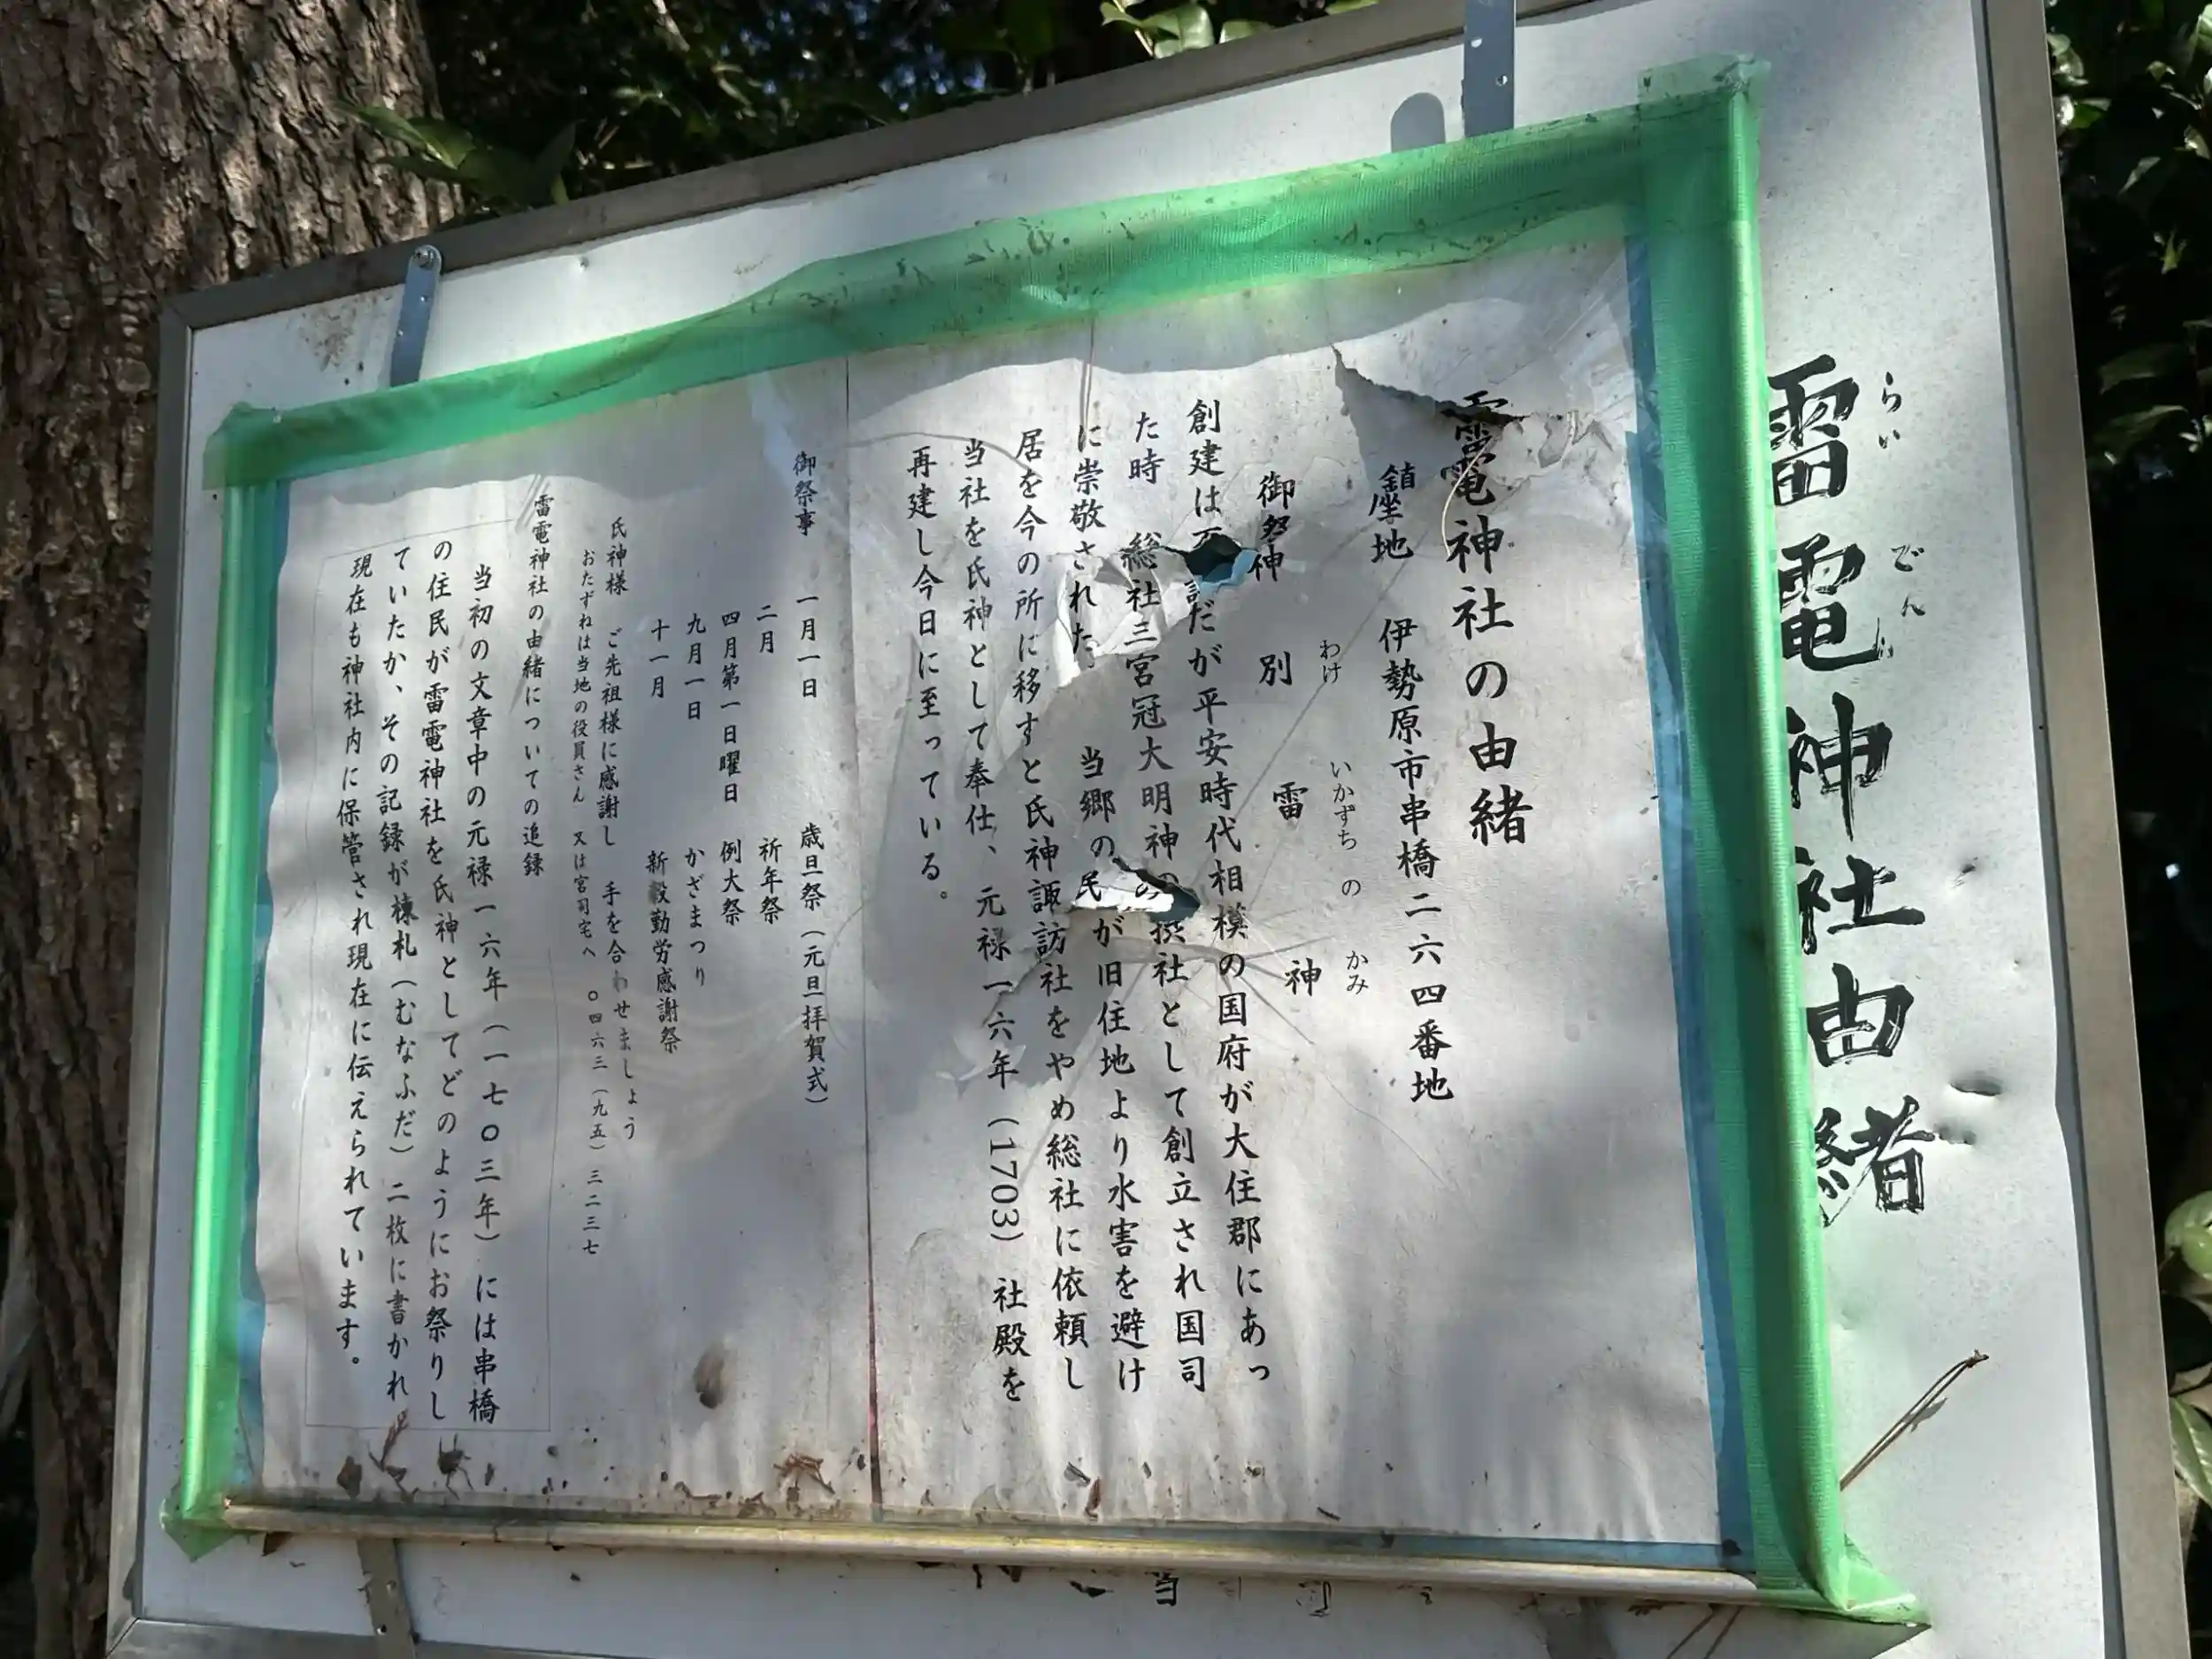 雷電神社由緒
らいでん
雷電神社の由緒
鎮座地 伊勢原市串橋二六四番地
御祭神 別 雷 神
わけ いかずち の かみ
創建は だが平安時代相模の国府が大住郡にあっ
た時 総社三宮冠大明神の 社として創立され国司
に崇敬された 当郷の民が旧住地より水害を避け
居を今の所に移すと氏神諏訪社をやめ総社に依頼し
当社を氏神として奉仕、元禄一六年（1703）社殿を
再建し今日に至っている。
御祭事 一月一日 歳旦祭（元旦拝賀式）
二月 祈年祭
四月第一日曜日 例大祭
九月一日 かざまつり
十一月 新穀勤労感謝祭
氏神様 ご先祖様に感謝し 手を合わせましょう
おたずねは当地の役員さん 又は宮司宅へ 〇四六三（九五）三二三七
雷電神社の由緒についての追録
当初の文章中の元禄一六年（一七〇三年）には串橋
の住民が雷電神社を氏神としてどのようにお祭りし
ていたか、その記録が棟札（むなふだ）二枚に書かれ
現在も神社内に保管され現在に伝えられています。
当